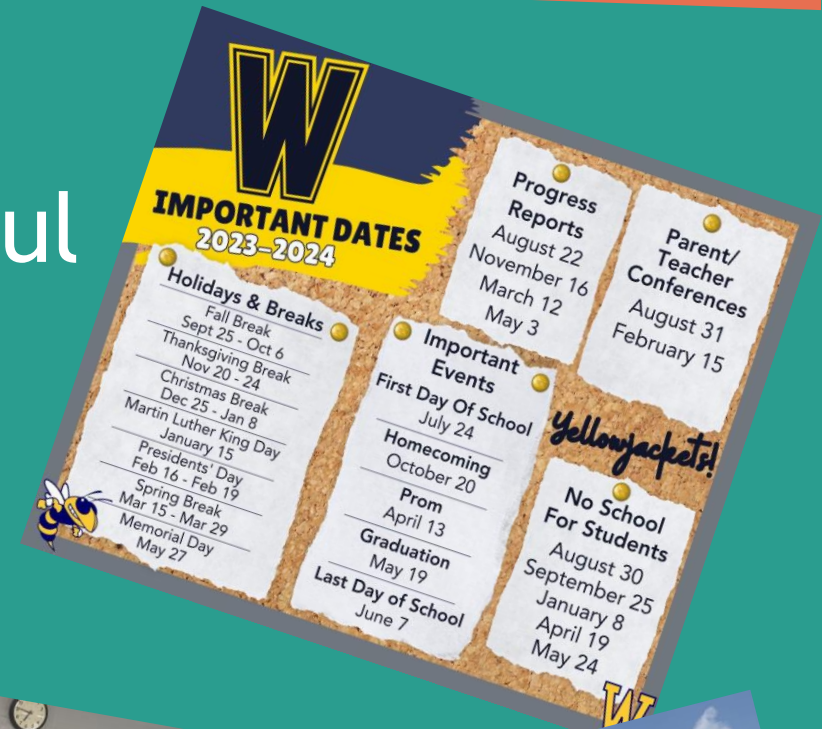 ul
W
IMPORTANT DATES
2023–2024
Holidays & Breaks
Fall Break
Sept 25 - Oct 6
Thanksgiving Break
Nov 20 - 24
Christmas Break
Dec 25 - Jan 8
Martin Luther King Day
January 15
Presidents' Day
Feb 16 - Feb 19
Spring Break
Mar 15 - Mar 29
Memorial Day
May 27
Important
Events
First Day Of School
July 24
Homecoming
October 20
Prom
April 13
Graduation
May 19
Last Day of School
June 7
Progress
Reports
August 22
November 16
March 12
May 3
Parent/
Teacher
Conferences
August 31
February 15
Yellowjackets!
No School
For Students
August 30
September 25
January 8
April 19
May 24
W